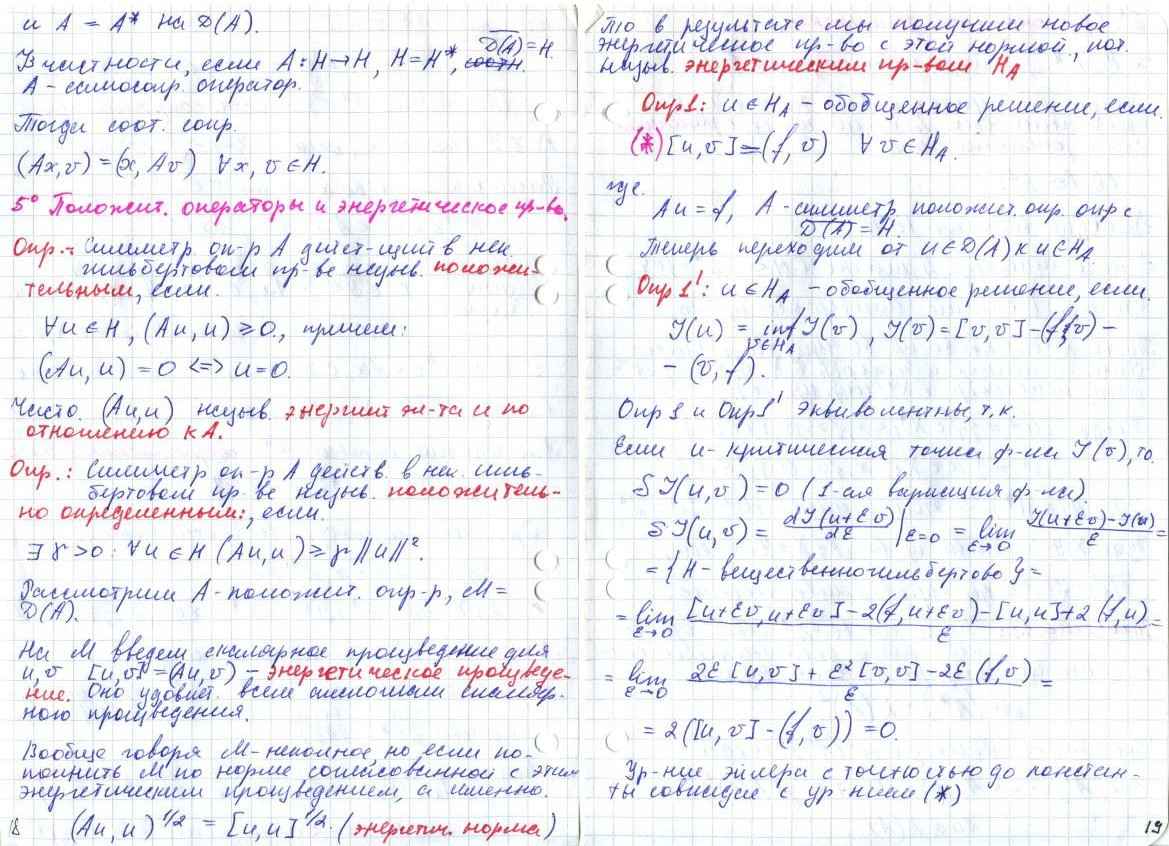 и A = A* на D(A).
В частности, если A: H→H, H=H*, D(A)=H.
A - самосопр. оператор.
Тогда соот. сопр.
(Ax,v) = (x, Av) ∀x, v ∈ H.
5° Положит. операторы и энергетическое пр-во.
Опр.: Симметр. оп-р A дейст-щий в нек.
гильбертовом пр-ве назыв. положи-
тельным, если.
∀u ∈ H, (Au, u) ≥ 0., причем:
(Au, u) = 0 <=> u=0.
Часто (Au,u) назыв. энергией эл-та u по
отношению к A.
Опр.: Симметр. оп-р A действ. в нек. гиль-
бертовом пр-ве назыв. положитель-
но определенным:, если.
∃ γ > 0 : ∀u ∈ H (Au, u) ≥ γ ||u||².
Рассмотрим A - положит. опр-р, M =
D(A).
На M введем скалярное произведение для
u, v [u,v] = (Au, v) - энергетическое произведе-
ние. Оно удовлет. всем аксиомам скаляр-
ного произведения.
Вообще говоря M - неполное, но если по-
полнить M по норме согласованной с этим
энергетическим произведением, а именно.
(Au, u)^1/2 = [u,u]^1/2. (энергетич. норма)
18
То в результате мы получим новое
энергетическое пр-во с этой нормой, кот.
назыв. энергетическим пр-вом H_A
Опр1: u ∈ H_A - обобщенное решение, если.
(*) [u, v] = (f, v) ∀ v ∈ H_A.
где.
Au = f, A - симметр. положит. опр. опр с
D(A) = H.
Теперь переходим от u ∈ D(A) к u ∈ H_A.
Опр 1': u ∈ H_A - обобщенное решение, если.
J(u) = inf J(v), J(v) = [v, v] - (f, v) -
v∈H_A
- (v, f).
Опр 1 и Опр 1' эквивалентны, т.к.
Если u - критическая точка ф-ла J(v), то.
δJ(u, v) = 0 (1-ая вариация ф-ла).
δJ(u, v) = dJ(u+εv)/dε |ε=0 = lim ε→0 J(u+εv)-J(u)/ε =
= {H - вещественно гильбертово} =
= lim ε→0 [u+εv, u+εv] - 2(f, u+εv) - [u,u] + 2(f, u)/ε =
= lim ε→0 2ε[u, v] + ε²[v, v] - 2ε(f, v)/ε =
= 2([u, v] - (f, v)) = 0.
Ур-ние Эйлера с точностью до констан-
ты совпадает с ур-нием (*)
19